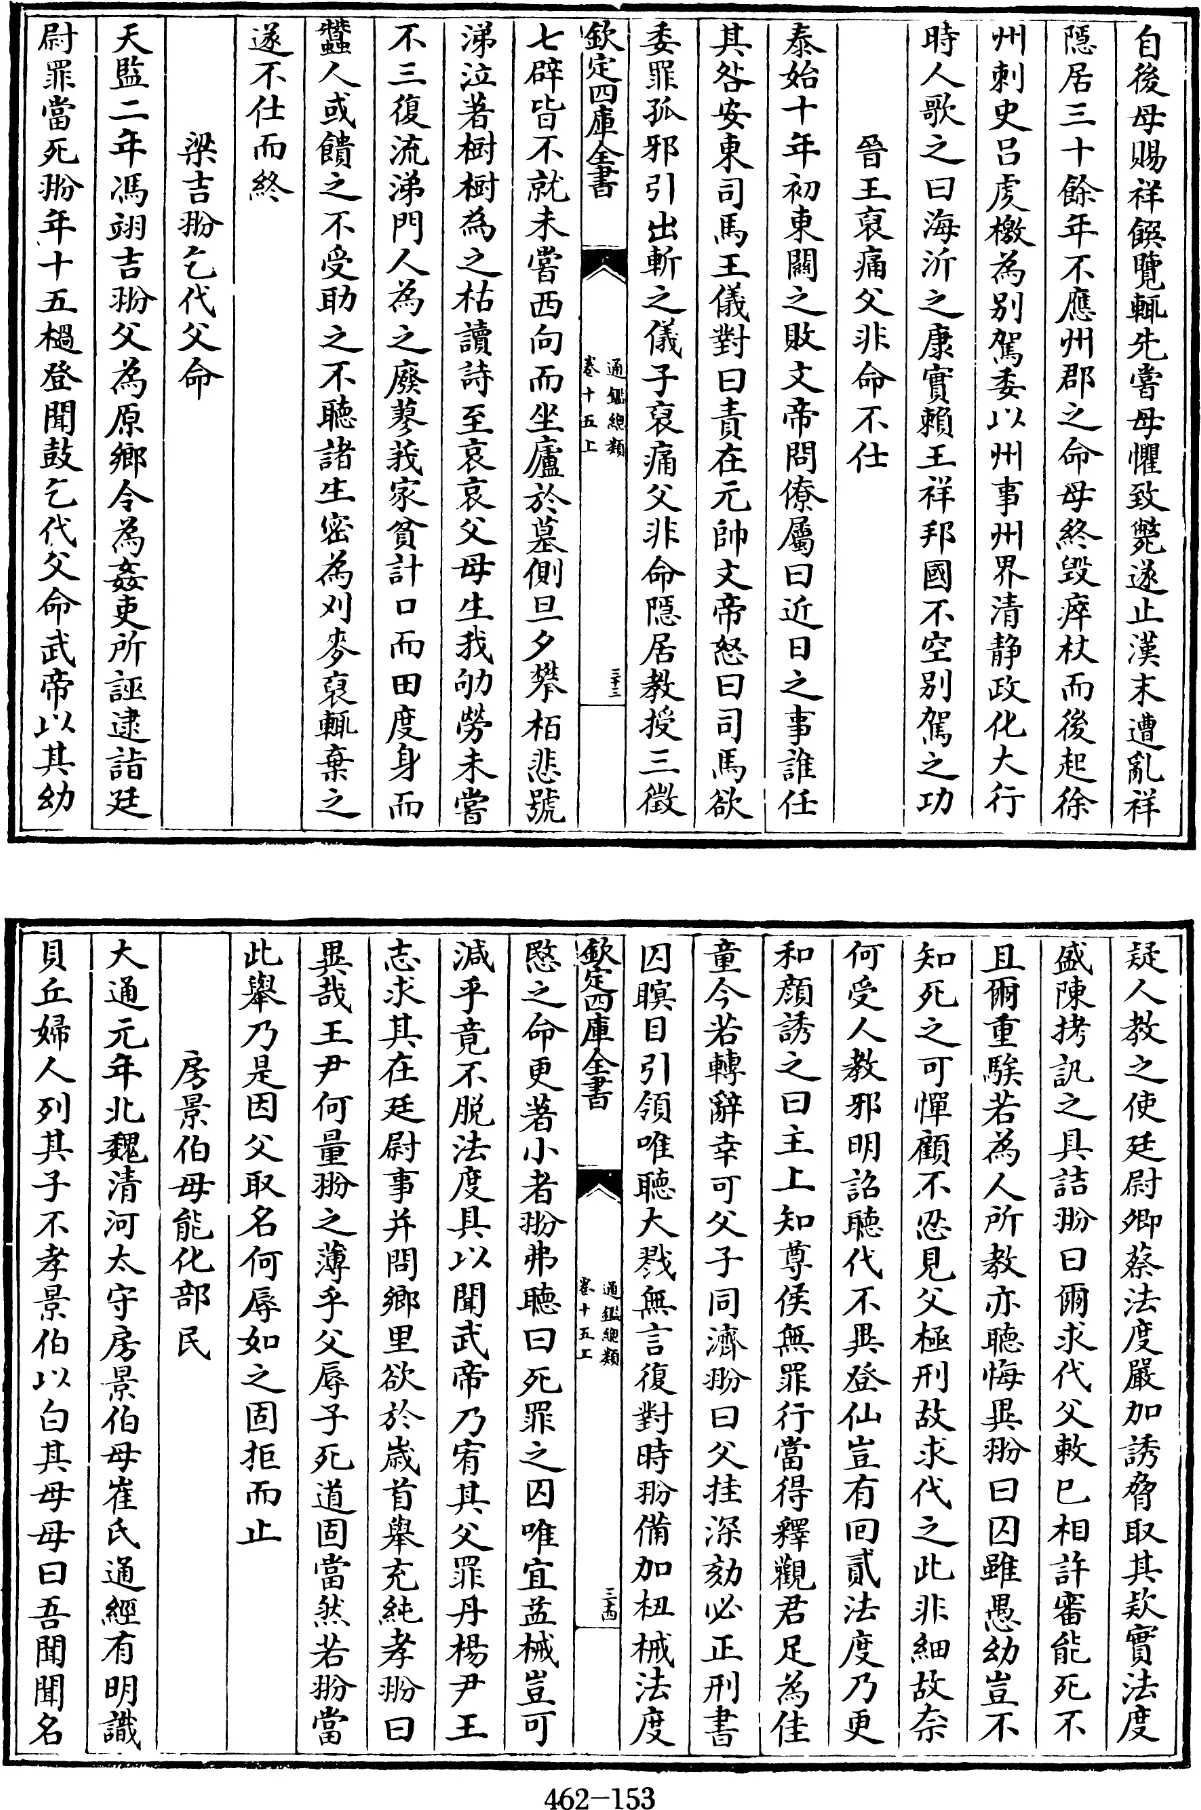 自後母賜祥饌覽輒先嘗母懼致斃遂止漢末遭亂祥
隱居三十餘年不應州郡之命母終毀瘁杖而後起徐
州刺史吕䖍檄為别駕委以州事州界清静政化大行
時人歌之曰海沂之康實賴王祥邦國不空别駕之功
晉王裒痛父非命不仕
泰始十年初東關之敗文帝問僚屬曰近日之事誰任
其咎安東司馬王儀對曰責在元帥文帝怒曰司馬欲
委罪孤邪引出斬之儀子裒痛父非命隱居教授三徵
欽定四庫全書
通鑑總類
卷十五上
三十三
七辟皆不就未嘗西向而坐廬於墓側旦夕攀栢悲號
涕泣著樹樹為之枯讀詩至哀哀父母生我劬勞未嘗
不三復流涕門人為之廢蓼莪家貧計口而田度身而
蠶人或饋之不受助之不聽諸生密為刈麥裒輒棄之
遂不仕而終
梁吉翂乞代父命
天監二年馮翊吉翂父為原鄉令為姦吏所誣逮詣廷
尉罪當死翂年十五檛登聞鼓乞代父命武帝以其幼
疑人教之使廷尉卿蔡法度嚴加誘脅取其款實法度
盛陳拷訊之具詰翂曰爾求代父敕已相許審能死不
且爾童騃若為人所教亦聽悔異翂曰囚雖愚幼豈不
知死之可憚顧不忍見父極刑故求代之此非細故奈
何受人教邪明詔聽代不異登仙豈有回貳法度乃更
和顔誘之曰主上知尊侯無罪行當得釋觀君足為佳
童今若轉辭幸可父子同濟翂曰父挂深劾必正刑書
囚瞑目引領唯聽大戮無言復對時翂備加杻械法度
欽定四庫全書
通鑑總類
卷十五上
三十四
愍之命更著小者翂弗聽曰死罪之囚唯宜益械豈可
減乎竟不脱法度具以聞武帝乃宥其父罪丹楊尹王
志求其在廷尉事并問鄉里欲於歲首舉充純孝翂曰
異哉王尹何量翂之薄乎父辱子死道固當然若翂當
此舉乃是因父取名何辱如之固拒而止
房景伯母能化部民
大通元年北魏清河太守房景伯母崔氏通經有明識
貝丘婦人列其子不孝景伯以白其母母曰吾聞聞名
462-153